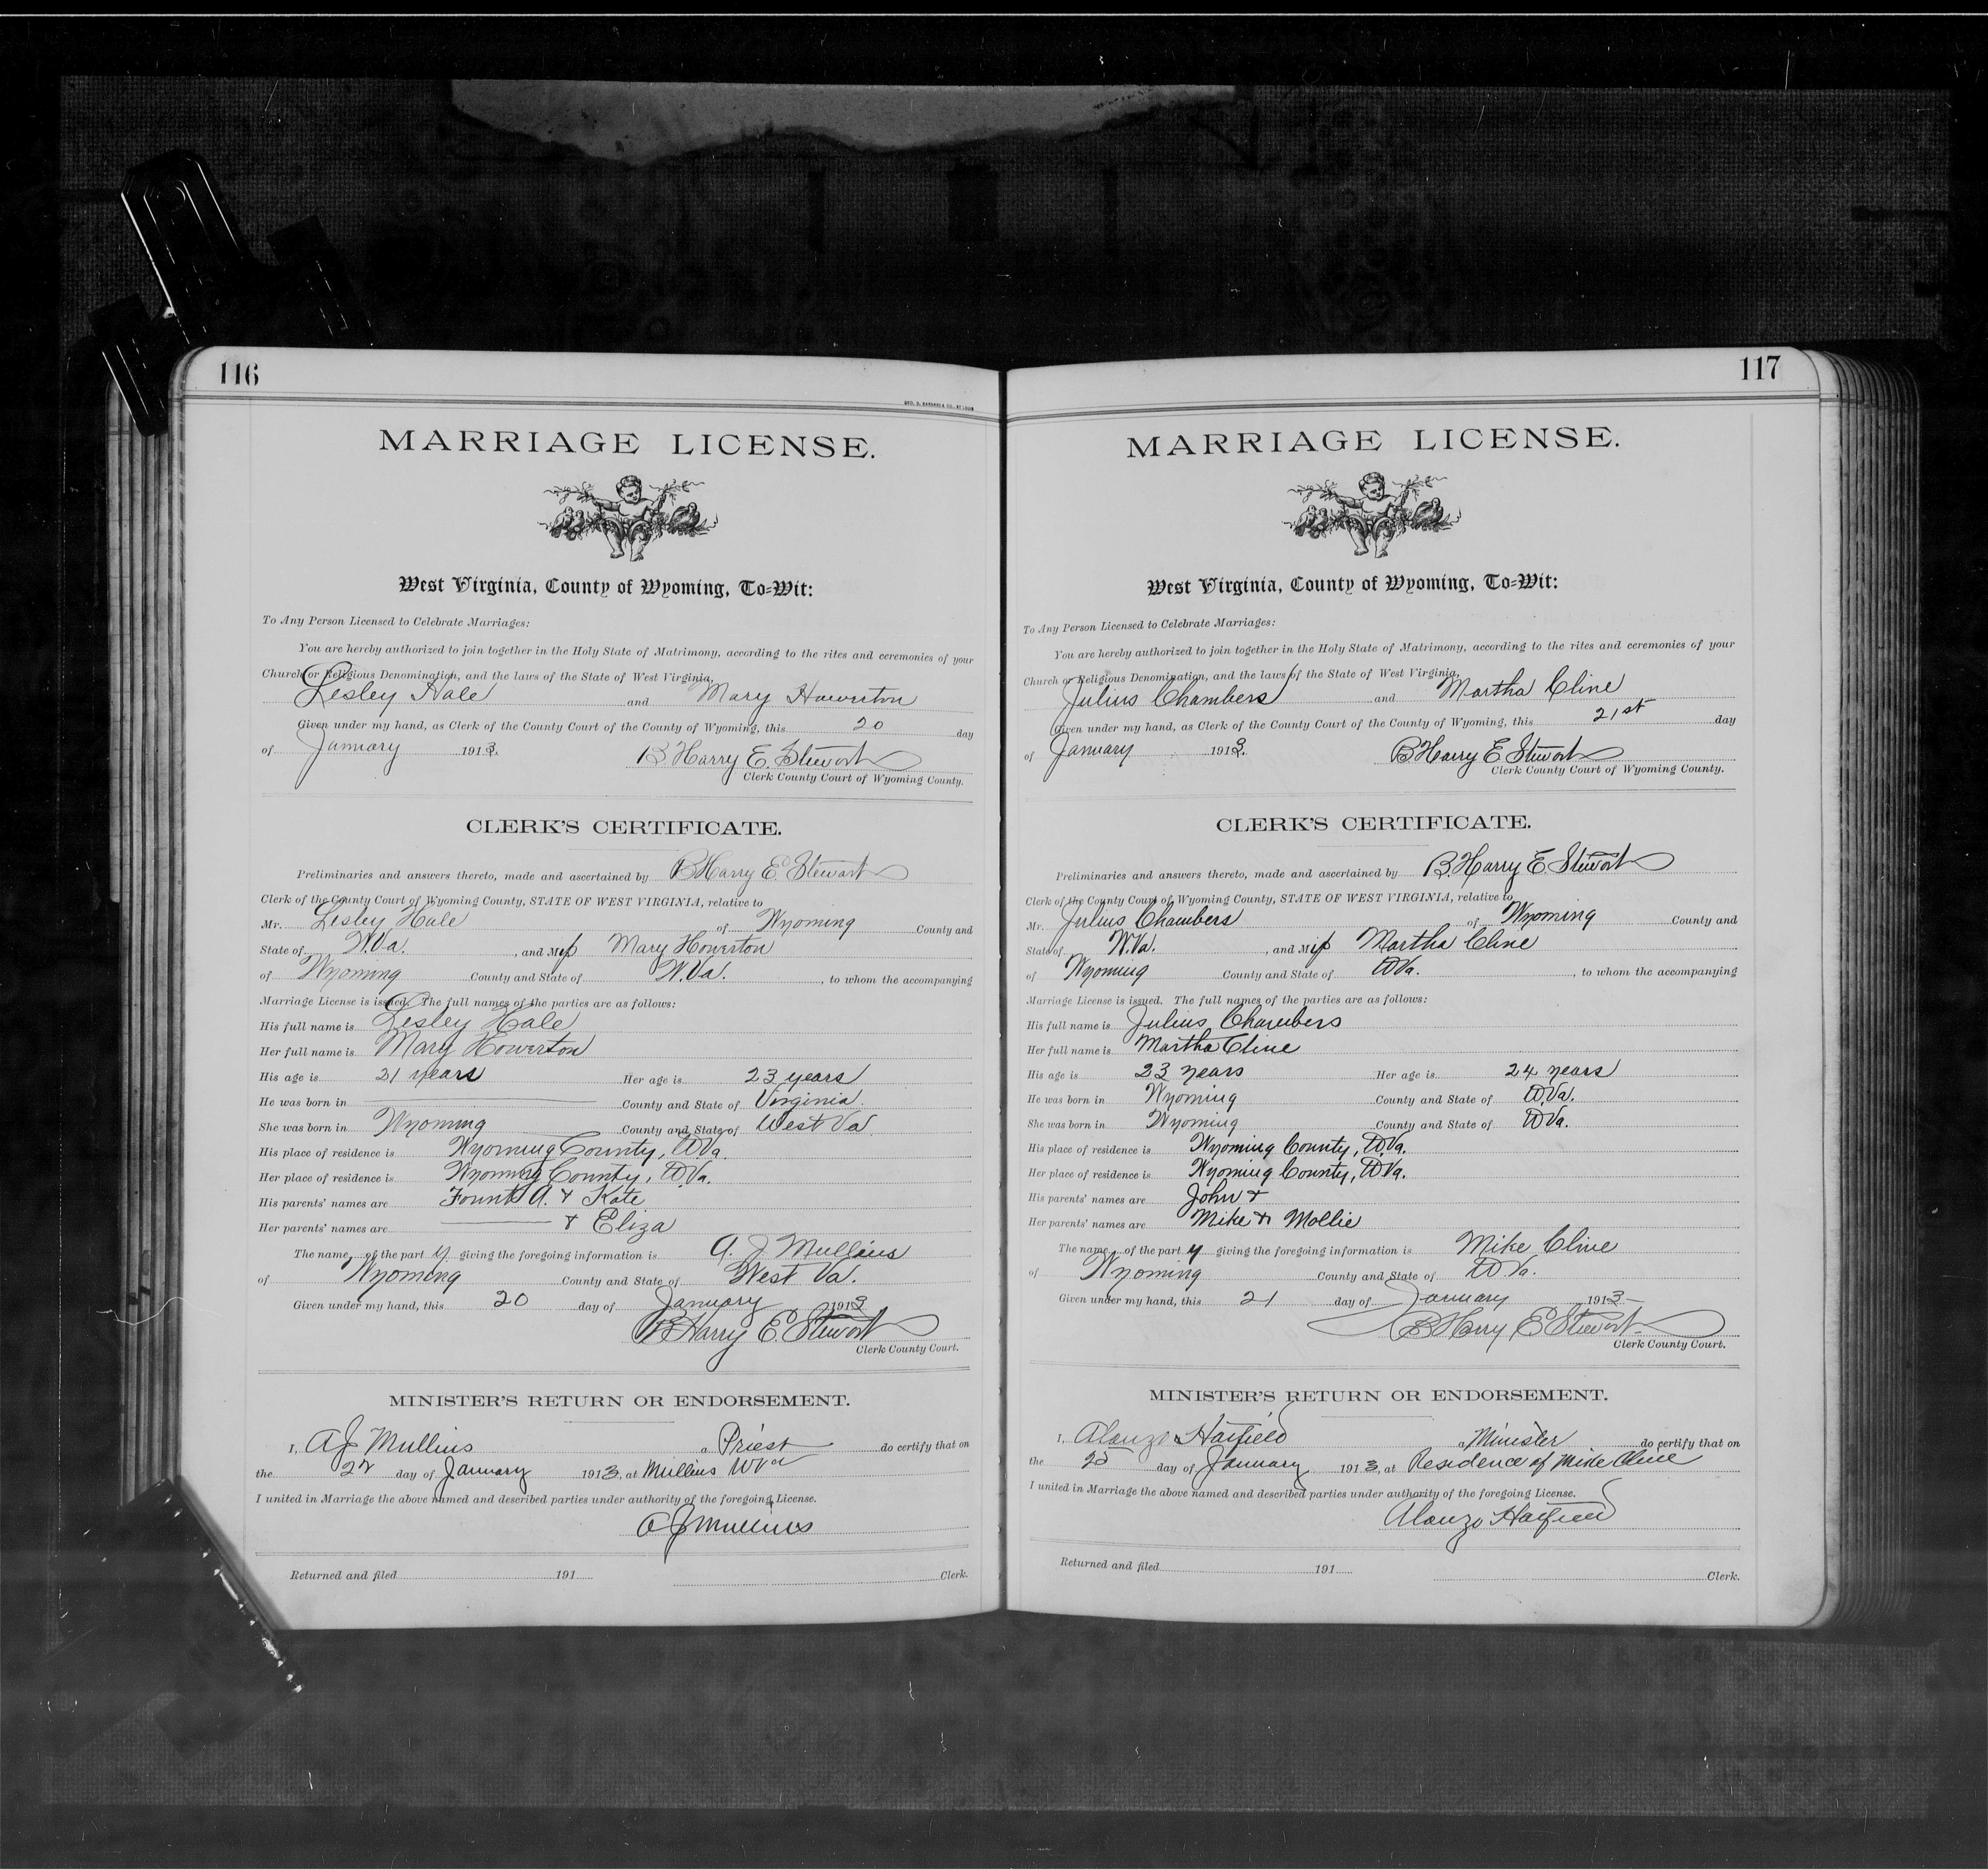 116
MARRIAGE LICENSE.
West Virginia, County of Wyoming, To=Wit:
To Any Person Licensed to Celebrate Marriages:
You are hereby authorized to join together in the Holy State of Matrimony, according to the rites and ceremonies of your
Church or Religious Denomination, and the laws of the State of West Virginia,
Lesley Hale and Mary Howerton
Given under my hand, as Clerk of the County Court of the County of Wyoming, this 20 day
of January 1913. B. Harry E. Stewart
Clerk County Court of Wyoming County.
CLERK'S CERTIFICATE.
Preliminaries and answers thereto, made and ascertained by B Harry E. Stewart
Clerk of the County Court of Wyoming County, STATE OF WEST VIRGINIA, relative to
Mr. Lesley Hale of Wyoming County and
State of W.Va. , and Miss Mary Howerton
of Wyoming County and State of W.Va. , to whom the accompanying
Marriage License is issued. The full names of the parties are as follows:
His full name is Lesley Hale
Her full name is Mary Howerton
His age is 21 years Her age is 23 years
He was born in County and State of Virginia.
She was born in Wyoming County and State of West Va.
His place of residence is Wyoming County, W.Va.
Her place of residence is Wyoming County, W.Va.
His parents' names are Fount A. & Kate
Her parents' names are & Eliza
The name of the part y giving the foregoing information is A. J Mullins
of Wyoming County and State of West Va.
Given under my hand, this 20 day of January 1913
B Harry E. Stewart
Clerk County Court.
MINISTER'S RETURN OR ENDORSEMENT.
I, A J Mullins a Priest do certify that on
the 22 day of January 1913, at Mullins W Va
I united in Marriage the above named and described parties under authority of the foregoing License.
A J Mullins
Returned and filed 191 Clerk.
117
MARRIAGE LICENSE.
West Virginia, County of Wyoming, To=Wit:
To Any Person Licensed to Celebrate Marriages:
You are hereby authorized to join together in the Holy State of Matrimony, according to the rites and ceremonies of your
Church or Religious Denomination, and the laws of the State of West Virginia,
Julius Chambers and Martha Cline
Given under my hand, as Clerk of the County Court of the County of Wyoming, this 21st day
of January 1913. B Harry E Stewart
Clerk County Court of Wyoming County.
CLERK'S CERTIFICATE.
Preliminaries and answers thereto, made and ascertained by B. Harry E. Stewart
Clerk of the County Court of Wyoming County, STATE OF WEST VIRGINIA, relative to
Mr. Julius Chambers of Wyoming County and
State of W.Va. , and Miss Martha Cline
of Wyoming County and State of W Va. , to whom the accompanying
Marriage License is issued. The full names of the parties are as follows:
His full name is Julius Chambers
Her full name is Martha Cline
His age is 23 years Her age is 24 years
He was born in Wyoming County and State of W.Va.
She was born in Wyoming County and State of W Va.
His place of residence is Wyoming County, W.Va.
Her place of residence is Wyoming County, W Va.
His parents' names are John &
Her parents' names are Mike & Mollie
The name of the part y giving the foregoing information is Mike Cline
of Wyoming County and State of W Va.
Given under my hand, this 21 day of January 1913
B Harry E Stewart
Clerk County Court.
MINISTER'S RETURN OR ENDORSEMENT.
I, Alonzo Hatfield a Minister do certify that on
the 25 day of January 1913, at Residence of Mike Cline
I united in Marriage the above named and described parties under authority of the foregoing License.
Alonzo Hatfield
Returned and filed 191 Clerk.